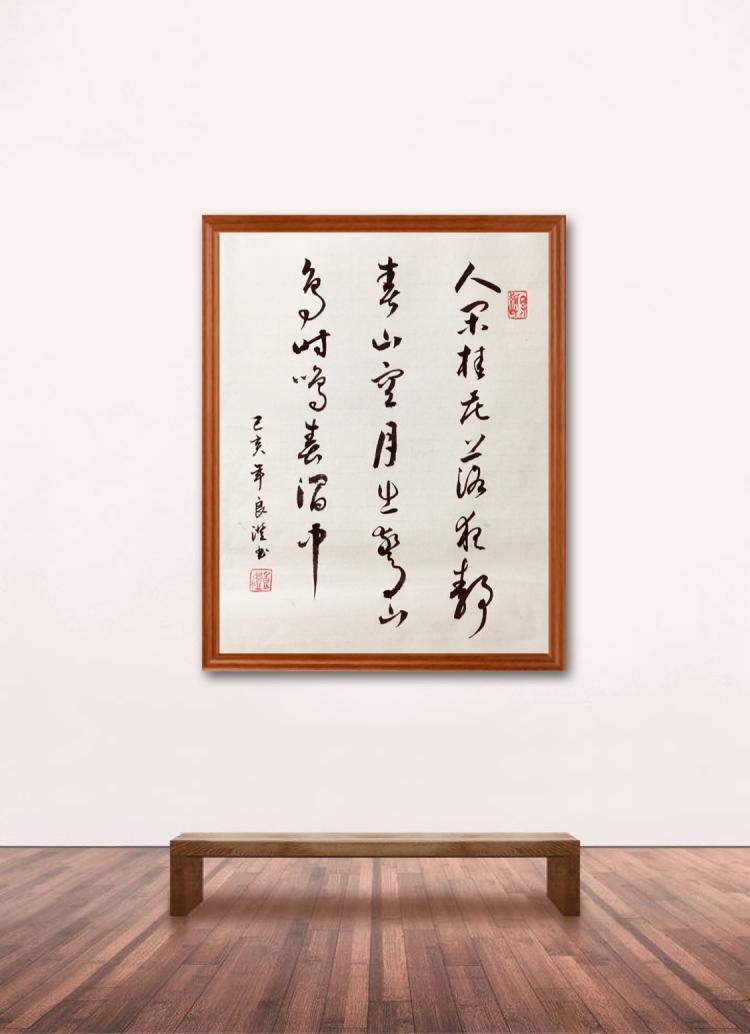 人闲桂花落夜静
春山空月出驚山
鸟时鸣春涧中
己亥年良书